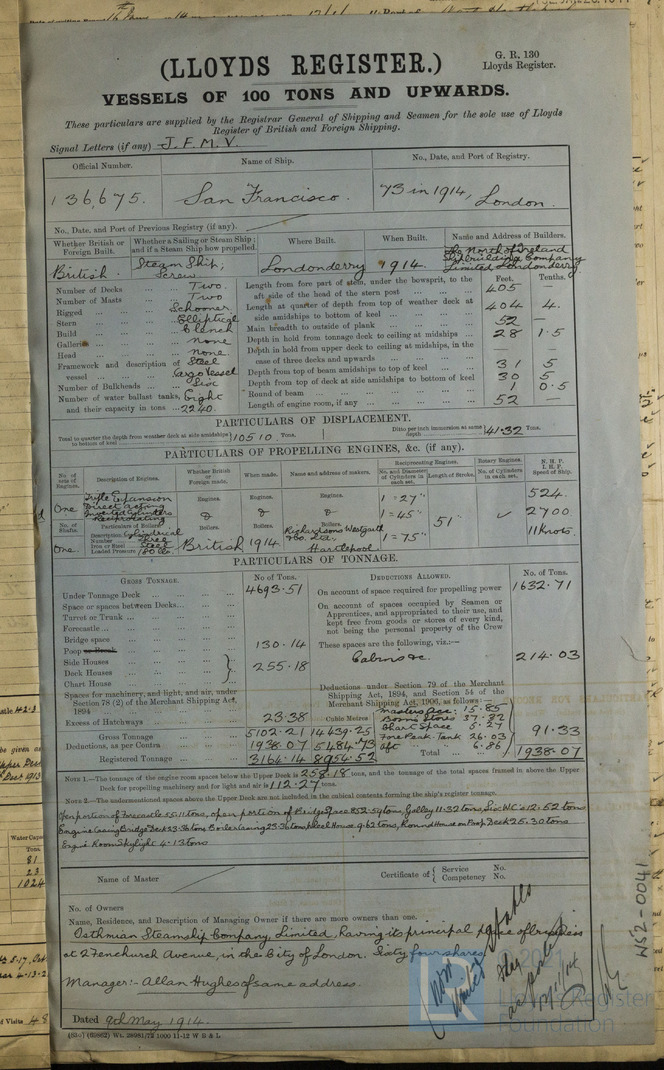 (LLOYDS REGISTER.)
G. R. 130
Lloyds Register.
VESSELS OF 100 TONS AND UPWARDS.
These particulars are supplied by the Registrar General of Shipping and Seamen for the sole use of Lloyds
Register of British and Foreign Shipping.
Signal Letters (if any) J. F. M. V.
Official Number. Name of Ship. No., Date, and Port of Registry.
136,675. San Francisco. 73 in 1914, London.
No., Date, and Port of Previous Registry (if any).
Whether British or Foreign Built. Whether a Sailing or Steam Ship; and if a Steam Ship how propelled. Where Built. When Built. Name and Address of Builders.
British. Steam Ship; Screw Londonderry 1914. The North of Ireland Shipbuilding Company Limited Londonderry
Feet. Tenths.
Number of Decks ... Two.
Number of Masts ... Two
Rigged ... Schooner
Stern ... Elliptical
Build ... Clench
Galleries ... none
Head ... none
Framework and description of vessel ... Steel Cargo Vessel
Number of Bulkheads ... Six
Number of water ballast tanks, and their capacity in tons ... Eight 2240.
Length from fore part of stem, under the bowsprit, to the aft side of the head of the stern post ... 405
Length at quarter of depth from top of weather deck at side amidships to bottom of keel ... 404 4.
Main breadth to outside of plank ... 52 —
Depth in hold from tonnage deck to ceiling at midships ... 28 1.5
Depth in hold from upper deck to ceiling at midships, in the case of three decks and upwards ... —
Depth from top of beam amidships to top of keel ... 31 5
Depth from top of deck at side amidships to bottom of keel 30 5
Round of beam ... 1 0.5
Length of engine room, if any ... 52 —
PARTICULARS OF DISPLACEMENT.
Total to quarter the depth from weather deck at side amidships to bottom of keel 10510 Tons. Ditto per inch immersion at same depth 41.32 Tons.
PARTICULARS OF PROPELLING ENGINES, &c. (if any).
No. of sets of Engines. Description of Engines. Whether British or Foreign made. When made. Name and address of makers. Reciprocating Engines. No. and Diameter of Cylinders in each set. Length of Stroke. Rotary Engines. No. of Cylinders in each set. N.H.P. I.H.P. Speed of Ship.
One Triple Expansion Direct acting Inverted Cylinders Reciprocating
Engines. Engines. Engines.
& & &
Boilers. Boilers. Boilers.
1 = 27" 524.
1 = 45" 51" 2700
1 = 75" 11 Knots
No. of Shafts. Particulars of Boilers.
One. Description Cylindrical
Number Three
Iron or Steel Steel
Loaded Pressure 180 lbs.
British 1914 Richardsons Westgarth &Co. Ltd. Hartlepool
PARTICULARS OF TONNAGE.
GROSS TONNAGE. No of Tons. DEDUCTIONS ALLOWED. No. of Tons.
Under Tonnage Deck ... 4693.51
Space or spaces between Decks...
Turret or Trunk ...
Forecastle...
Bridge space
Poop or Break ... 130.14
Side Houses
Deck Houses ... 255.18
Chart House
Spaces for machinery, and light, and air, under Section 78 (2) of the Merchant Shipping Act, 1894
Excess of Hatchways ... 23.38
Cubic Metres
Gross Tonnage ... 5102.21 14439.25
Deductions, as per Contra ... 1938.07 5484.73
Registered Tonnage ... 3164.14 8954.52
On account of space required for propelling power 1632.71
On account of spaces occupied by Seamen or Apprentices, and appropriated to their use, and kept free from goods or stores of every kind, not being the personal property of the Crew
These spaces are the following, viz.:—
Cabins &c. 214.03
Deductions under Section 79 of the Merchant Shipping Act, 1894, and Section 54 of the Merchant Shipping Act, 1906, as follows:—
Masters Acc: 15.85
Bosns Stores 37.82
Chart Space 5.27
Fore Peak Tank 26.03
Aft " " 6.86
91.33
Total ... 1938.07
NOTE 1.—The tonnage of the engine room spaces below the Upper Deck is 258.18 tons, and the tonnage of the total spaces framed in above the Upper
Deck for propelling machinery and for light and air is 112.27 tons.
NOTE 2.—The undermentioned spaces above the Upper Deck are not included in the cubical contents forming the ship's register tonnage.
Open portion of Forecastle 55.11 tons, open portion of Bridge Space 852.54 tons, Galley 11.32 tons, Six W.C's 12.52 tons
Engine casing Bridge Deck 23.36 tons Boiler casing 23.36 tons Wheel House 9.62 tons, Round House on Poop Deck 25.30 tons
Engine Room Skylight 4.13 tons
Name of Master
Certificate of { Service No.
Competency No.
No. of Owners
Name, Residence, and Description of Managing Owner if there are more owners than one.
Isthmian Steamship Company, Limited, having its principal place of business
at 2 Fenchurch Avenue, in the City of London. Sixty four shares
Manager:- Allan Hughes of same address.
Dated 9th May 1914.
(51c) (69862) Wt. 28981/72 1000 11-12 W B & L
W52-0041
LR
© 2021
Lloyd's Register
Foundation